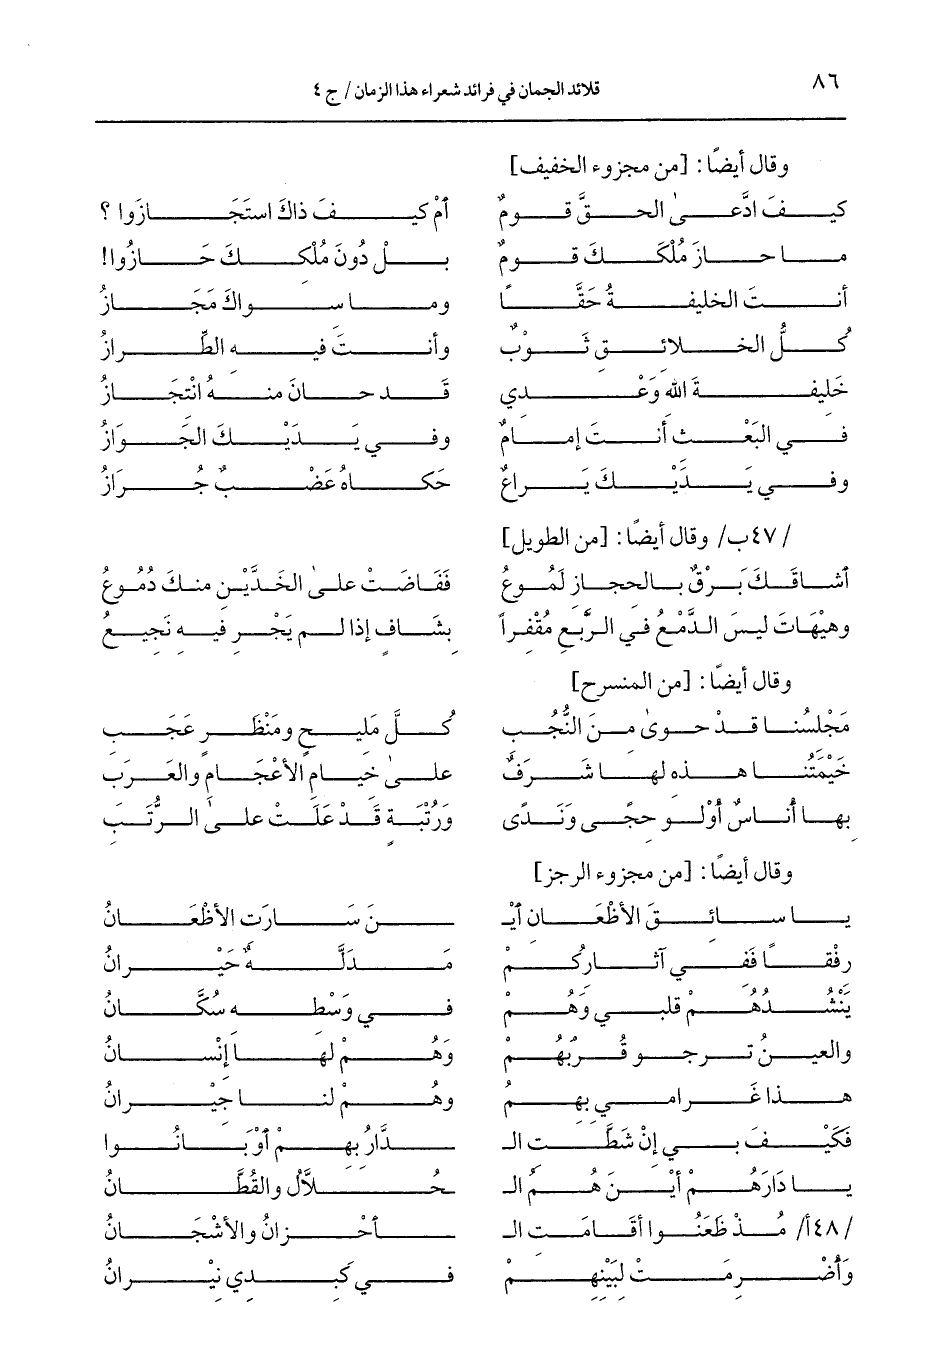 ٨٦
قلائد الجمان في فرائد شعراء هذا الزمان / ج ٤
وقال أيضًا: [من مجزوء الخفيف]
كيفَ ادَّعىٰ الحقَّ قومٌ أمْ كيفَ ذاكَ استَجَازَوا ؟
ما حازَ مُلْكَكَ قومٌ بلْ دُونَ مُلْكِكَ حَازُوا!
أنتَ الخليفةُ حَقًّا وما سواكَ مَجَازُ
كُلُّ الخلائقِ ثَوْبٌ وأنتَ فيهِ الطِّرازُ
خَليفةَ الله وَعْدي قد حانَ منهُ انْتِجَازُ
في البَعْثِ أنتَ إمامٌ وفي يَدَيْكَ الجَوَازُ
وفي يَدَيْكَ يَراعٌ حَكاهُ عَضْبٌ جُرَازُ
/٤٧ب/ وقال أيضًا: [من الطويل]
أشاقَكَ بَرْقٌ بالحجازِ لَمُوعُ فَفَاضَتْ علىٰ الخَدَّيْنِ منكَ دُمُوعُ
وهيْهَاتَ ليسَ الدَّمْعُ في الرَّبْعِ مُقْفِراً بشَافٍ إذا لم يَجْرِ فيهِ نَجيعُ
وقال أيضًا: [من المنسرح]
مَجْلسُنا قدْ حوىٰ منَ النُّجُبِ كُلَّ مَليحٍ ومَنْظَرٍ عَجَبِ
خَيْمَتُنا هذه لها شَرَفٌ علىٰ خيامِ الأعْجَامِ والعَرَبِ
بها أُناسٌ أوْلو حِجًى وَنَدًى وَرُتْبَةٍ قَدْ عَلَتْ علىٰ الرُّتَبِ
وقال أيضًا: [من مجزوء الرجز]
يا سائقَ الأظْعَانِ أيْـ ـنَ سَارَتِ الأظْعَانُ
رفْقاً فَفي آثارِكُمْ مَدَلَّهٌ حَيْرانُ
يَنْشُدُهُمْ قلبي وَهُمْ في وَسْطِهِ سُكَّانُ
والعينُ ترجو قُرْبَهُمْ وَهُمْ لها إنْسانُ
هذا غَرامي بِهِمُ وهُمْ لنا جيْرانُ
فَكَيْفَ بي إنْ شَطَّتِ الـ ـدَّارُ بِهِمْ أوْ بَانُوا
يا دَارَهُمْ أيْنَ هُمُ الـ ـحُلاَّلُ والقُطَّانُ
/٤٨أ/ مُذْ ظَعَنُوا أقَامَتِ الـ ـأحْزانُ والأشْجَانُ
وَأُضْرِمَتْ لِبَيْنِهِمْ في كَبِدي نيْرانُ